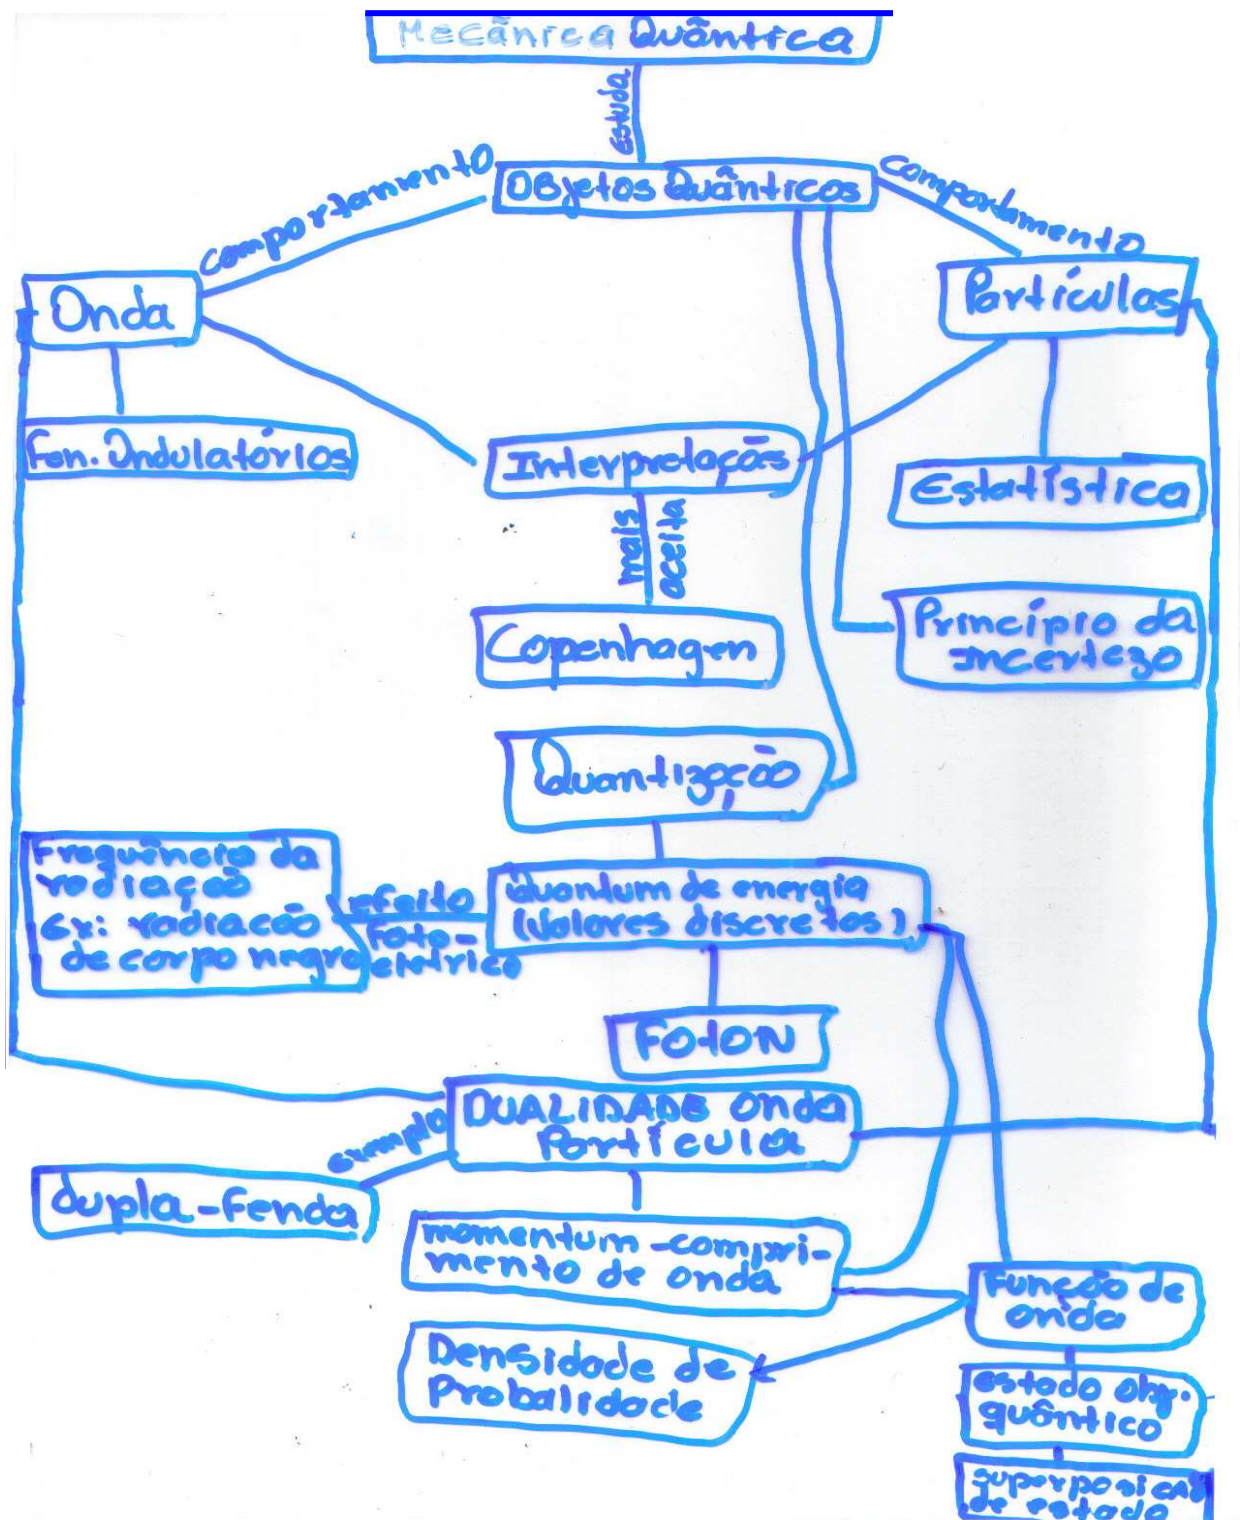 Mecânica Quântica
estuda
comportamento
Objetos Quânticos
comportamento
Onda
Partículas
Fen. Ondulatórios
Interpretações
Estatística
mais
aceita
Copenhagen
Princípio da
Incerteza
Quantização
Frequência da
radiação
Ex: radiação
de corpo negro
efeito
Foto-
elétrico
Quantum de energia
(Valores discretos)
Foton
DUALIDADE onda
Partícula
exemplo
dupla-fenda
momentum-compri-
mento de onda
Função de
onda
Densidade de
Probalidade
estado obj.
quântico
superposição
de estado